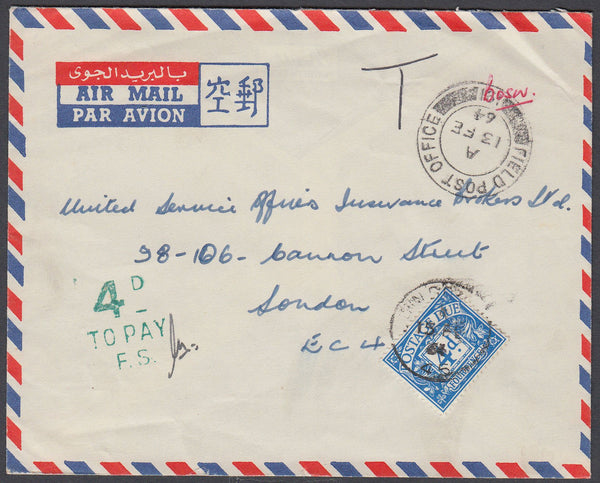 بالبريد الجوى
AIR MAIL
PAR AVION
郵空
T
FIELD POST OFFICE
A
13 FE
64
United Service Offices Insurance Brokers Ltd.
98-106- Cannon Street
London
EC4
4D
TO PAY
F.S.
POSTAGE DUE
4D